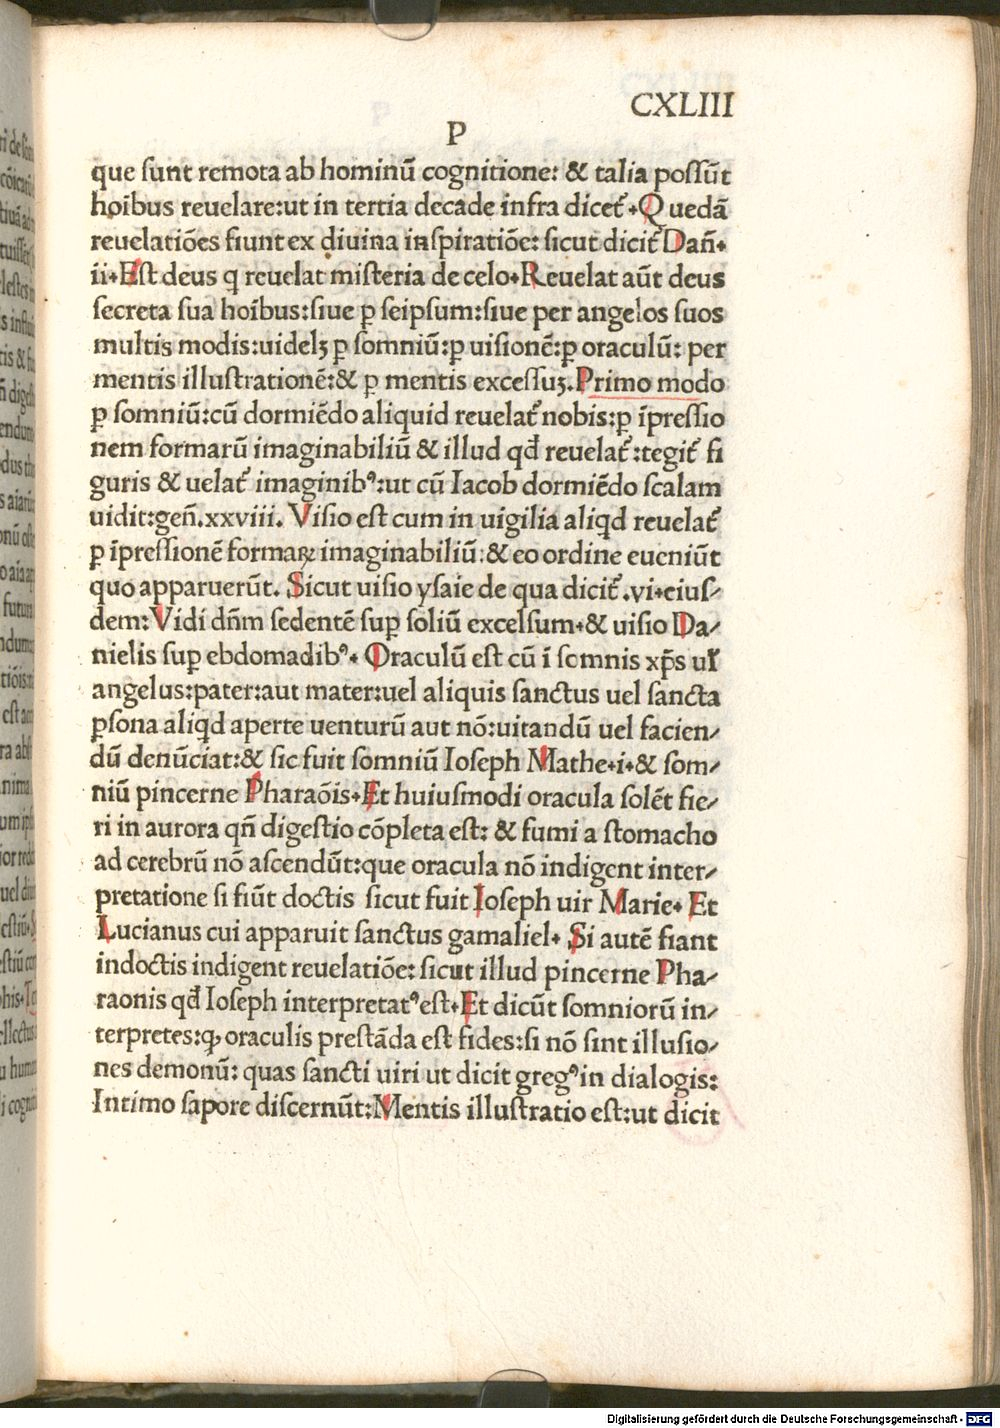 CXLIII
P
que sunt remota ab hominū cognitione: & talia possūt
hoībus reuelare:ut in tertia decade infra dicet᷑. Quedā
reuelatiōes fiunt ex diuina inspiratiōe: sicut dicit᷑ Dañ.
ii. Est deus q reuelat misteria de celo. Reuelat aūt deus
secreta sua hoībus:siue ꝑ seipsum:siue per angelos suos
multis modis:uidelꝫ ꝑ somniū:ꝑ uisionē:ꝑ oraculū: per
mentis illustrationē:& ꝑ mentis excessuꝫ. Primo modo
ꝑ somniū:cū dormiēdo aliquid reuelat᷑ nobis:ꝑ īpressio
nem formarū imaginabiliū & illud qđ reuelat᷑:tegit᷑ fi
guris & uelat᷑ imaginibꝰ:ut cū Iacob dormiēdo scalam
uidit:geñ.xxviii. Visio est cum in uigilia aliqd reuelat᷑
ꝑ īpressionē formaꝝ imaginabiliū:& eo ordine eueniūt
quo apparuerūt. Sicut uisio ysaie de qua dicit᷑.vi.eius-
dem: Vidi dñm sedentē suꝑ soliū excelsum.& uisio Da-
nielis suꝑ ebdomadibꝰ. Oraculū est cū ī somnis xp̄s ul̄
angelus:pater:aut mater:uel aliquis sanctus uel sancta
ꝑsona aliqd aperte uenturū aut nō:uitandū uel facien-
dū denūciat:& sic fuit somniū Ioseph Mathe.i.& som-
niū pincerne Pharaōis. Et huiusmodi oracula solēt fie-
ri in aurora qñ digestio cōpleta est: & fumi a stomacho
ad cerebrū nō ascendūt:que oracula nō indigent inter-
pretatione si fiūt doctis sicut fuit Ioseph uir Marie. Et
Lucianus cui apparuit sanctus gamaliel. Si autē fiant
indoctis indigent reuelatiōe: sicut illud pincerne Pha-
raonis qđ Ioseph interpretatꝰ est. Et dicūt somniorū in-
terpretes:ꝙ oraculis prestāda est fides:si nō sint illusio-
nes demonū: quas sancti uiri ut dicit gregꝰ in dialogis:
Intimo sapore discernūt: Mentis illustratio est:ut dicit
Digitalisierung gefördert durch die Deutsche Forschungsgemeinschaft - DFG